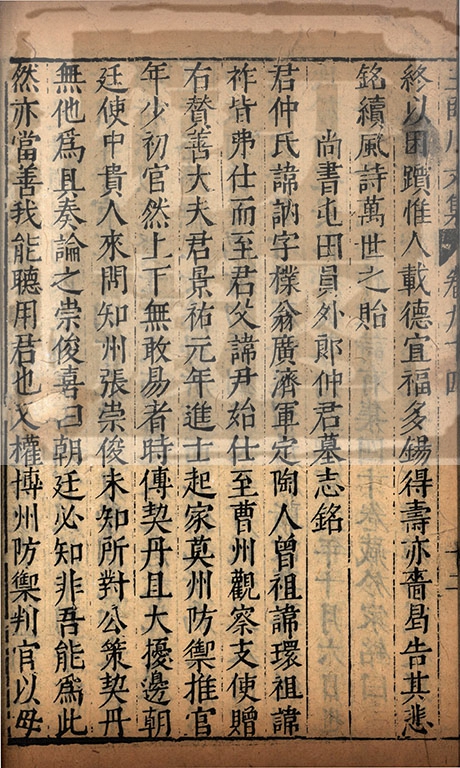 文集 卷九十四
終以困躓惟人載德宜福多錫得壽亦嗇曷告其悲
銘續風詩萬世之貽
尚書屯田員外郎仲君墓志銘
君仲氏諱訥字樸翁廣濟軍定陶人曾祖諱環祖諱
祚皆弗仕而至君父諱尹始仕至曹州觀察支使贈
右賛善大夫君景祐元年進士起家莫州防禦推官
年少初官然上下無敢易者時傳契丹且大擾邊朝
廷使中貴人來問知州張崇俊未知所對公策契丹
無他為且奏論之崇俊喜曰朝廷必知非吾能為此
然亦當善我能聽用君也又權博州防禦判官以母